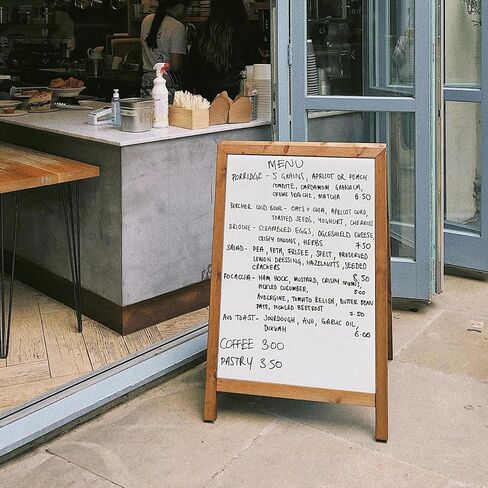 MENU
PORRIDGE - 5 GRAINS, APRICOT OR PEACH
COMPOTE, CARDAMOM GRANOLA,
CRÈME FRAÎCHE, MATCHA 6.50
BIRCHER COLD BOWL - OATS + CHIA, APRICOT CURD,
TOASTED SEEDS, YOGHURT, CHERRIES
BRIOCHE - SCRAMBLED EGGS, OGLESHIELD CHEESE,
CRISPY ONIONS, HERBS 7.50
SALAD - PEA, FETA, FRISEE, SPELT, PRESERVED
LEMON DRESSING, HAZELNUTS, SEEDED
CRACKERS 8.50
FOCACCIA - HAM HOCK, MUSTARD, CRISPY
PICKLED CUCUMBER, 8.00
AUBERGINE, TOMATO RELISH, BUTTER BEAN
PATE, PICKLED BEETROOT 7.50
AVO TOAST - SOURDOUGH, AVO, GARLIC OIL,
DUKKAH 6.00
COFFEE 3.00
PASTRY 3.50